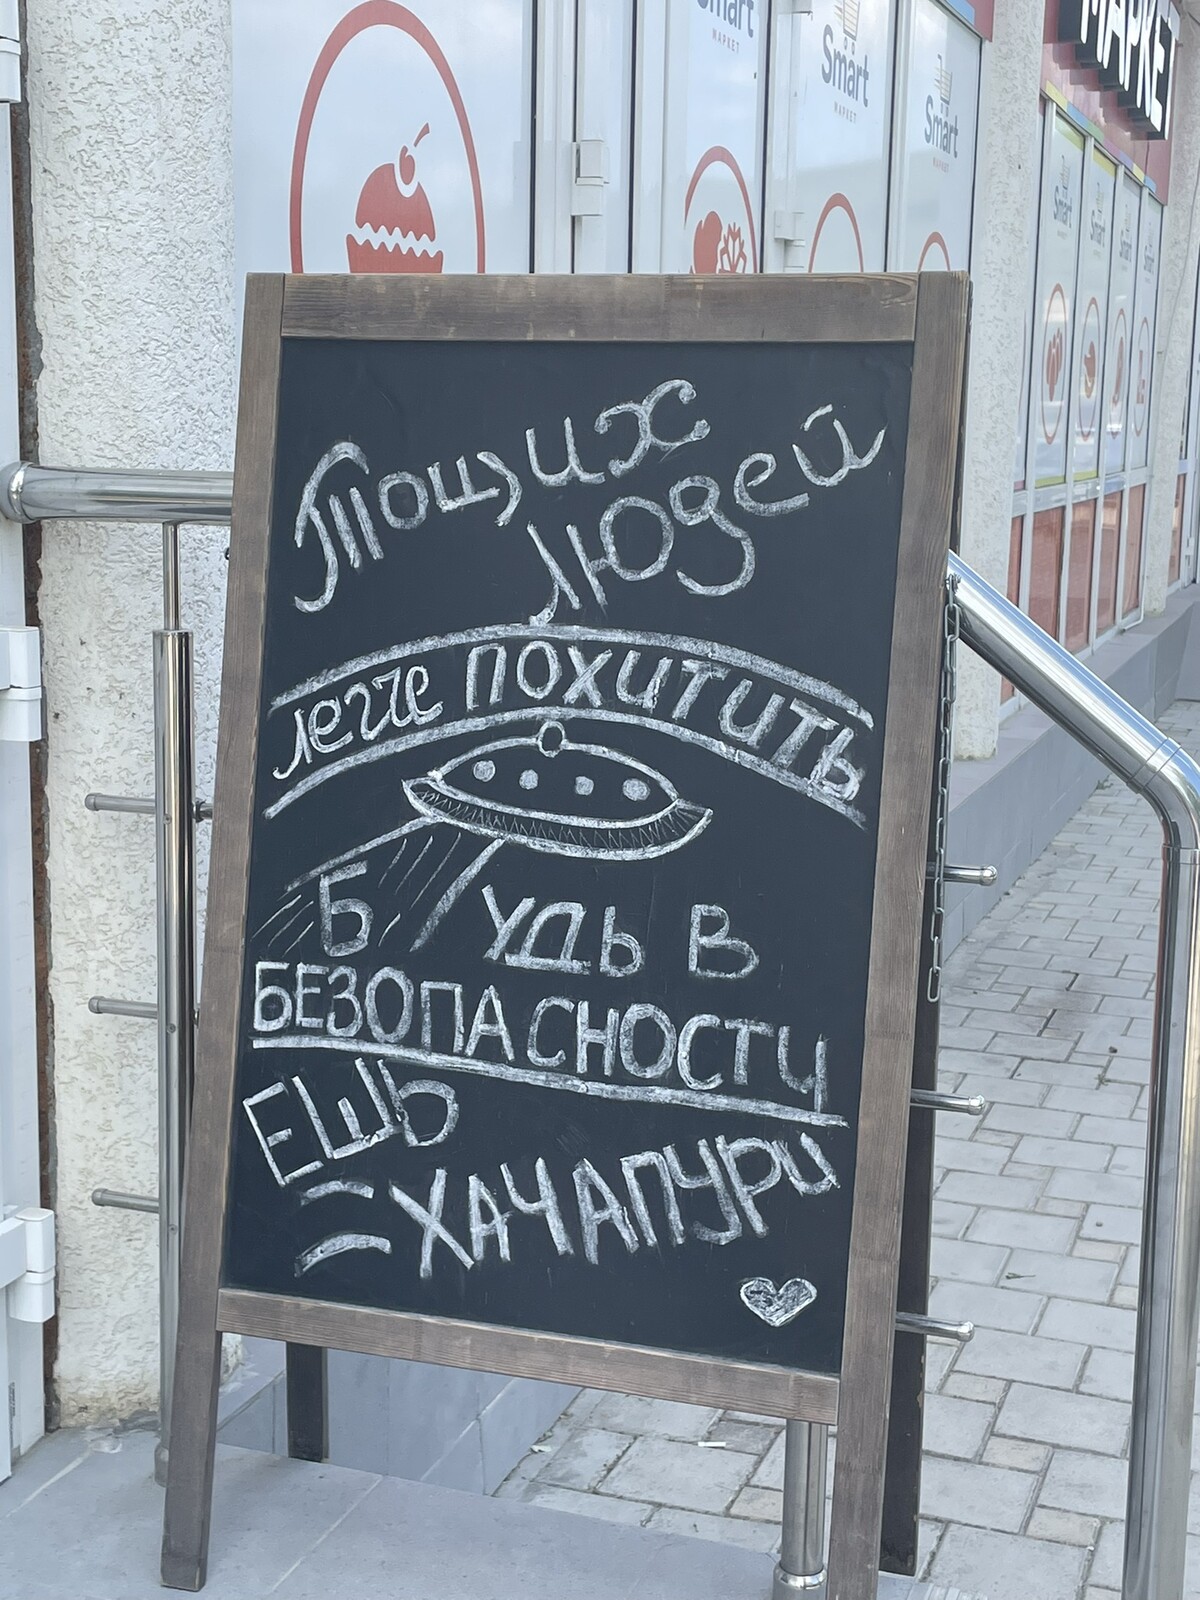 Smart
МАРКЕТ
Smart
МАРКЕТ
Smart
МАРКЕТ
МАРКЕТ
Smart
Smart
Smart
Smart
Тощих
людей
легче ПОХИТИТЬ
Будь в
БЕЗОПАСНОСТИ
ЕШЬ
ХАЧАПУРИ